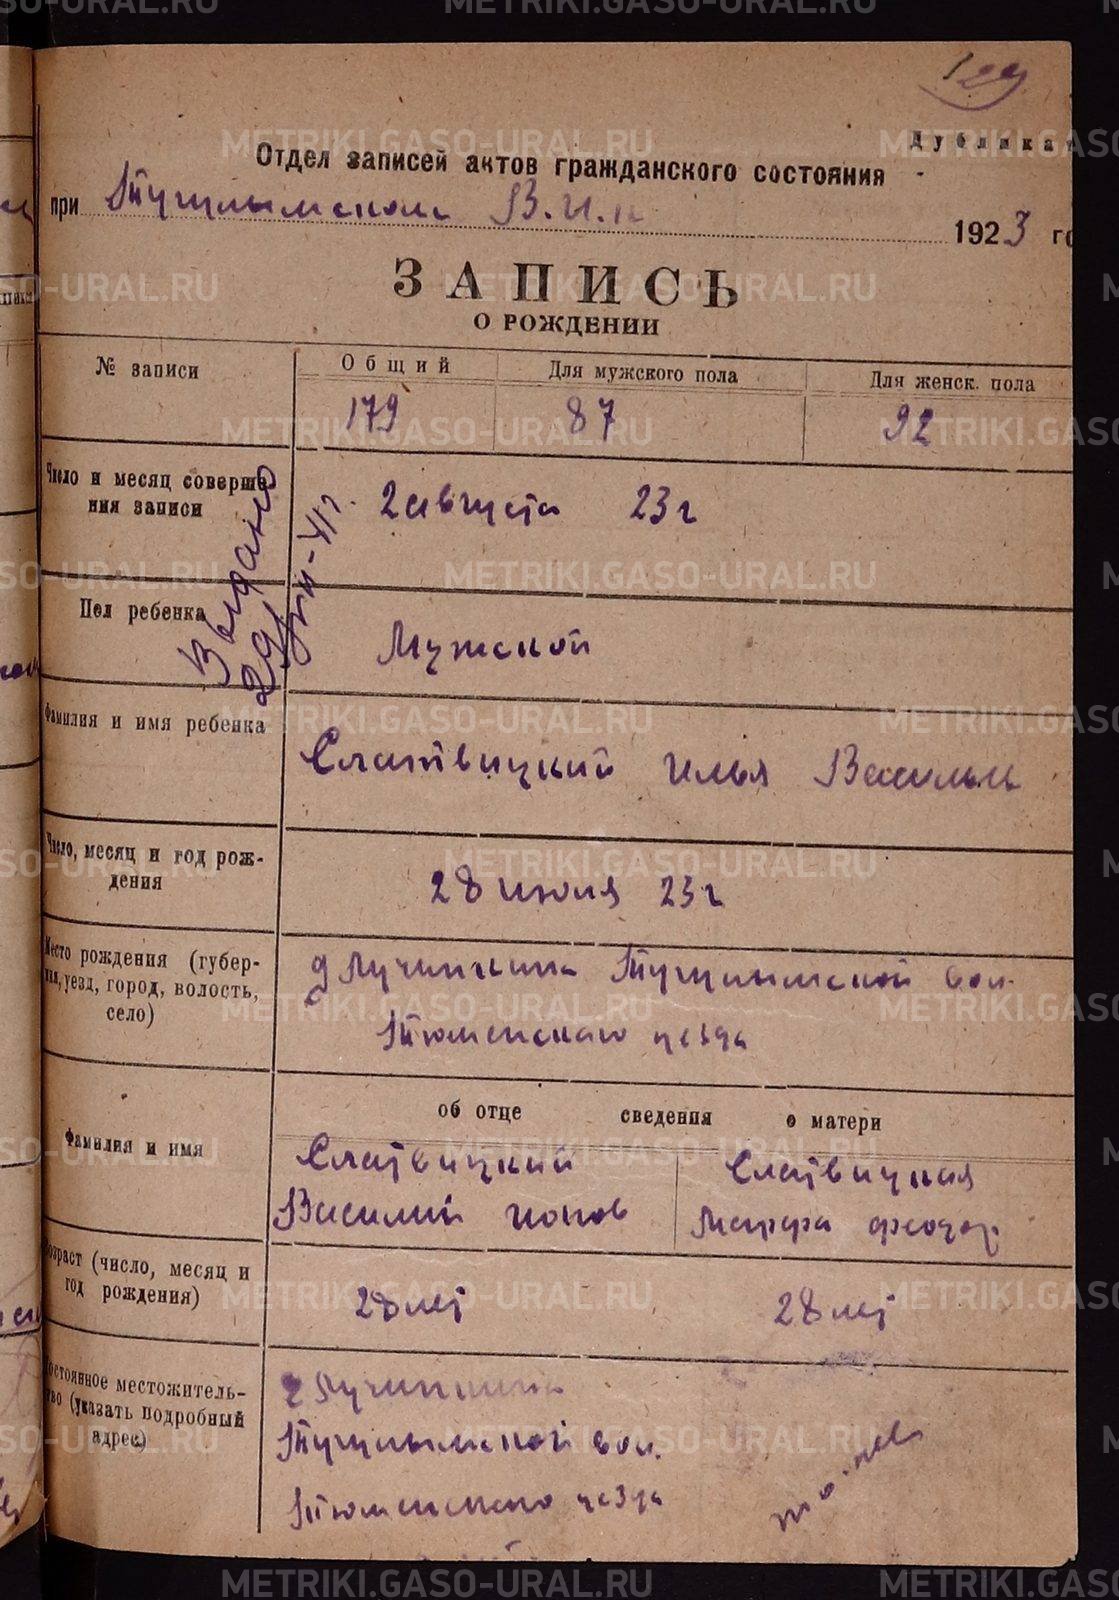 129
Дубликат
Отдел записей актов гражданского состояния
при Тугулымском В.И.К 1923 го
ЗАПИСЬ
О РОЖДЕНИИ
№ записи
Общий
Для мужского пола
Для женск. пола
179
87
92
Число и месяц соверше
ния записи
2 августа 23 г
Выдано
Пол ребенка
Мужской
Фамилия и имя ребенка
Слатвицкий Илья Василь
Число, месяц и год рож-
дения
28 июля 23 г
Место рождения (губер-
ния, уезд, город, волость,
село)
д Лучинкина Тугулымской вол.
Тюменскаго уезда
об отце сведения о матери
Фамилия и имя
Слатвицкий
Василий Ионов
Слатвицкая
Марфа Феодор.
Возраст (число, месяц и
год рождения)
28 лет
28 лет
Постоянное местожитель-
ство (указать подробный
адрес)
д Лучинкина
Тугулымской вол.
Тюменскаго уезда
то-же
METRIKI.GASO-URAL.RU